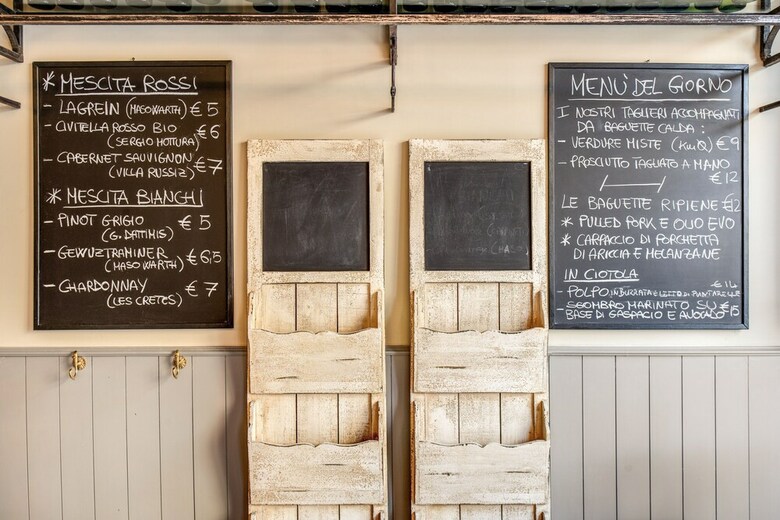 * MESCITA ROSSI
- LAGREIN (MASO WARTH) € 5
- CIVITELLA ROSSO BIO € 6
(SERGIO MOTTURA)
- CABERNET SAUVIGNON € 7
(VILLA RUSSIZ)
* MESCITA BIANCHI
- PINOT GRIGIO € 5
(G. DATTIMIS)
- GEWUZTRAMINER € 6,5
(MASO WARTH)
- CHARDONNAY € 7
(LES CRETES)
MENÙ DEL GIORNO
I NOSTRI TAGLIERI ACCOMPAGNATI
DA BAGUETTE CALDA :
- VERDURE MISTE (KM0) € 9
- PROSCIUTTO TAGLIATO A MANO
€ 12
LE BAGUETTE RIPIENE €12
* PULLED PORK E OLIO EVO
* CARPACCIO DI PORCHETTA
DI ARICCIA E MELANZANE
IN CIOTOLA
€ 14
- POLPO IN BURRATA E LETTO DI PUNTARELLE
- SGOMBRO MARINATO SU € 15
BASE DI GASPACIO E AVOCADO